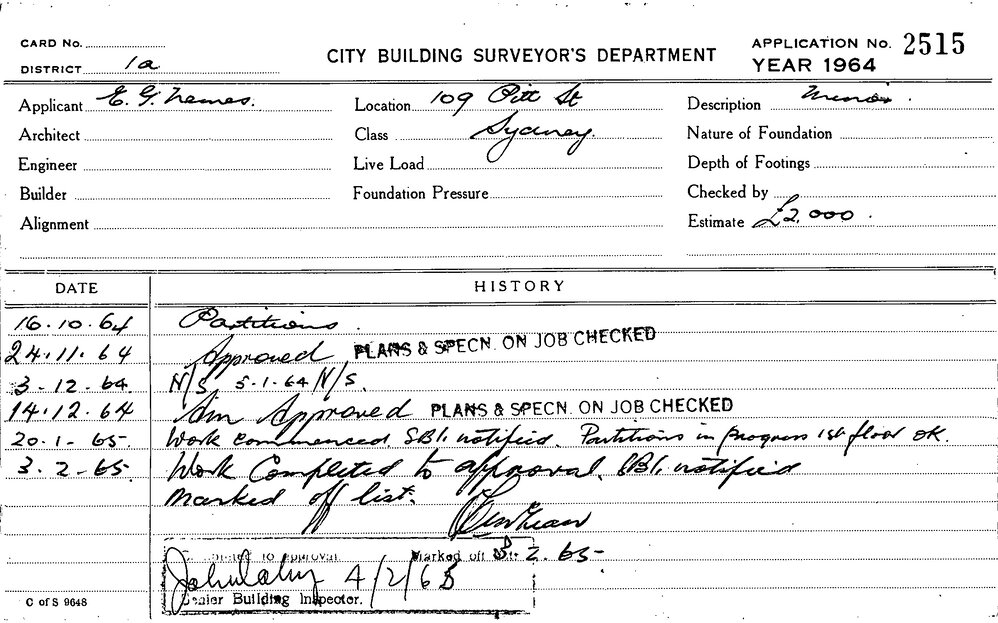 CARD No.
DISTRICT 1a
CITY BUILDING SURVEYOR'S DEPARTMENT
APPLICATION No. 2515
YEAR 1964
Applicant E. G. Nemes.
Location 109 Pitt St
Description Minor.
Architect
Class Sydney.
Nature of Foundation
Engineer
Live Load
Depth of Footings
Builder
Foundation Pressure
Checked by
Alignment
Estimate £2,000.
DATE HISTORY
16.10.64 Partitions.
24.11.64 Approved PLANS & SPECN. ON JOB CHECKED
3-12-64 N/S. 5-1-64 N/S.
14.12.64 Am Approved PLANS & SPECN. ON JOB CHECKED
20.1-65. Work commenced SBI. notified. Partitions in progress 1st floor OK.
3-2-65 Work Completed to approval. SBI. notified
marked off list.
to approval. Marked off 2.65-
4/2/65
Senior Building Inspector.
C of S 9648